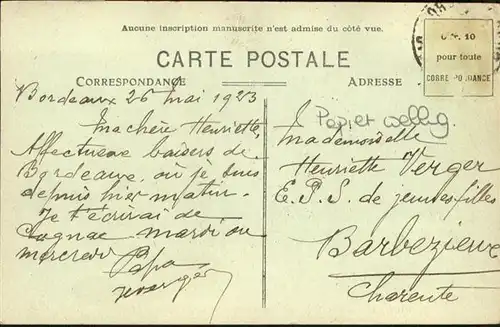 Aucune inscription manuscrite n'est admise du côté vue.
CARTE POSTALE
CORRESPONDANCE
ADRESSE
0 fr. 10
pour toute
CORRESPONDANCE
Bordeaux 26 Mai 1923
Ma chère Henriette,
Affectueux baisers de
Bordeaux, où je suis
depuis hier matin.
Je t'écrirai de
Cognac mardi ou
mercredi
Papa
Papier wellig.
Mademoiselle
Henriette Verger
E.P.S. de jeunes filles
Barbezieux
Charente